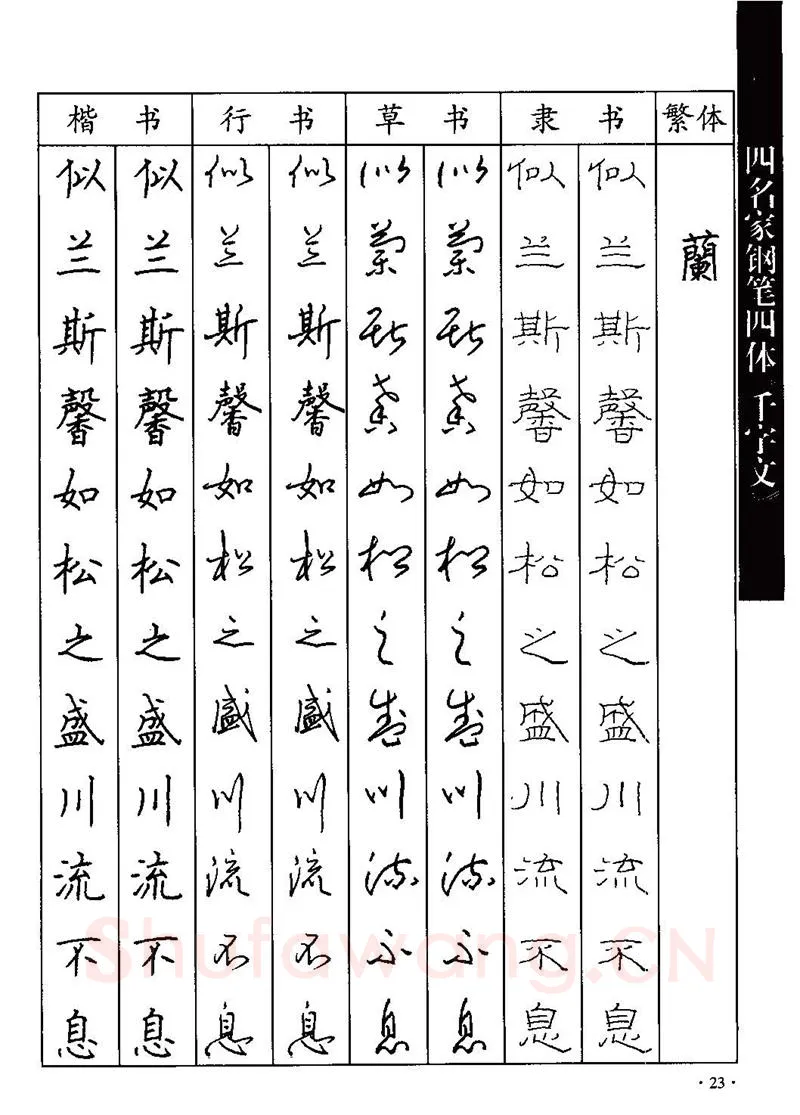 四名家钢笔四体《千字文》
楷书 行书 草书 隶书 繁体
似 似 似 似 似 似 似 似
兰 兰 兰 兰 蘭 蘭 兰 兰 蘭
斯 斯 斯 斯 斯 斯 斯 斯
馨 馨 馨 馨 馨 馨 馨 馨
如 如 如 如 如 如 如 如
松 松 松 松 松 松 松 松
之 之 之 之 之 之 之 之
盛 盛 盛 盛 盛 盛 盛 盛
川 川 川 川 川 川 川 川
流 流 流 流 流 流 流 流
不 不 不 不 不 不 不 不
息 息 息 息 息 息 息 息
Shufawang.CN
·23·